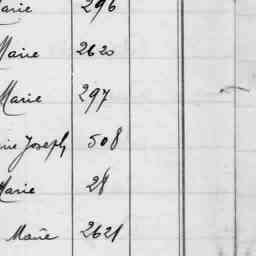 Marie 296
Marie 2620
Marie 297
Joseph 508
Marie 28
Marie 2621